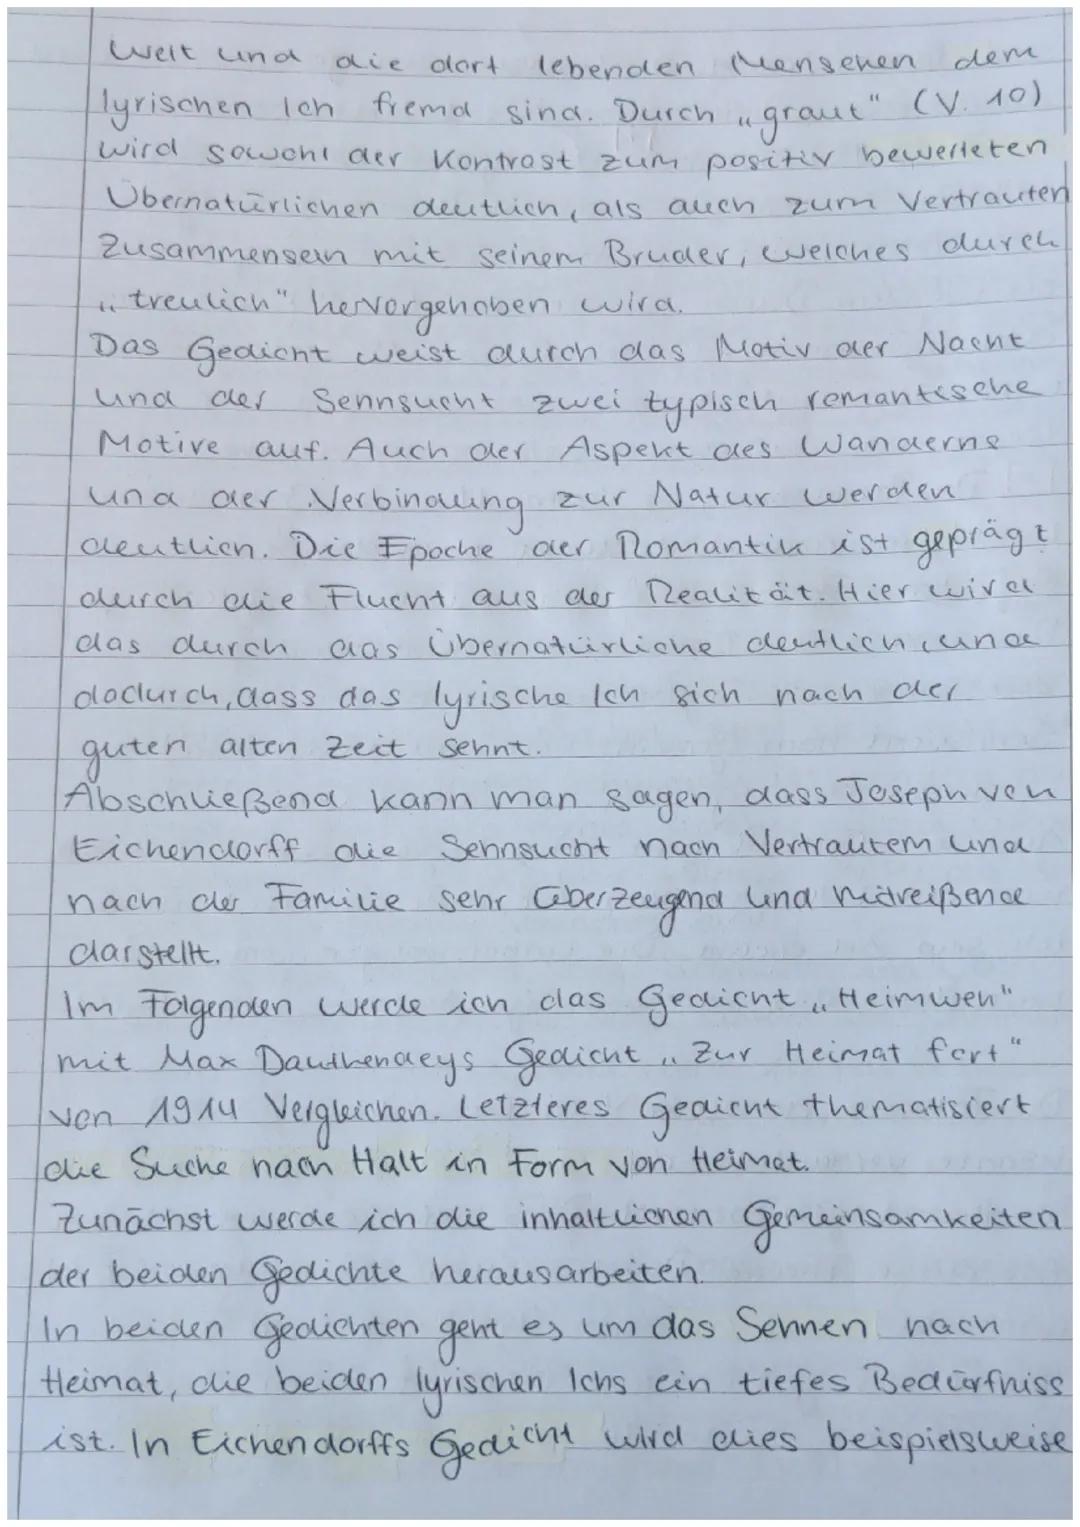 Welt und die dort lebenden Menschen dem
lyrischen Ich fremd sind. Durch „graut" (V. 10)
wird sowohl der Kontrast zum positiv bewerteten
Übernatürlichen deutlich, als auch zum Vertrauten
Zusammensein mit seinem Bruder, welches durch
„treulich" hervorgehoben wird.
Das Gedicht weist durch das Motiv der Nacht
und der Sehnsucht zwei typisch romantische
Motive auf. Auch der Aspekt des Wanderns
und der Verbindung zur Natur werden
deutlich. Die Epoche der Romantik ist geprägt
durch die Flucht aus der Realität. Hier wird
das durch das Übernatürliche deutlich, und
dadurch, dass das lyrische Ich sich nach der
guten alten Zeit sehnt.
Abschließend kann man sagen, dass Joseph von
Eichendorff die Sehnsucht nach Vertrautem und
nach der Familie sehr überzeugend und mitreißend
darstellt.
Im Folgenden werde ich das Gedicht „Heimweh"
mit Max Dauthendeys Gedicht „Zur Heimat fort"
von 1914 Vergleichen. Letzteres Gedicht thematisiert
die Suche nach Halt in Form von Heimat.
Zunächst werde ich die inhaltlichen Gemeinsamkeiten
der beiden Gedichte herausarbeiten.
In beiden Gedichten geht es um das Sehnen nach
Heimat, die beiden lyrischen Ichs ein tiefes Bedürfniss
ist. In Eichendorffs Gedicht wird dies beispielsweise